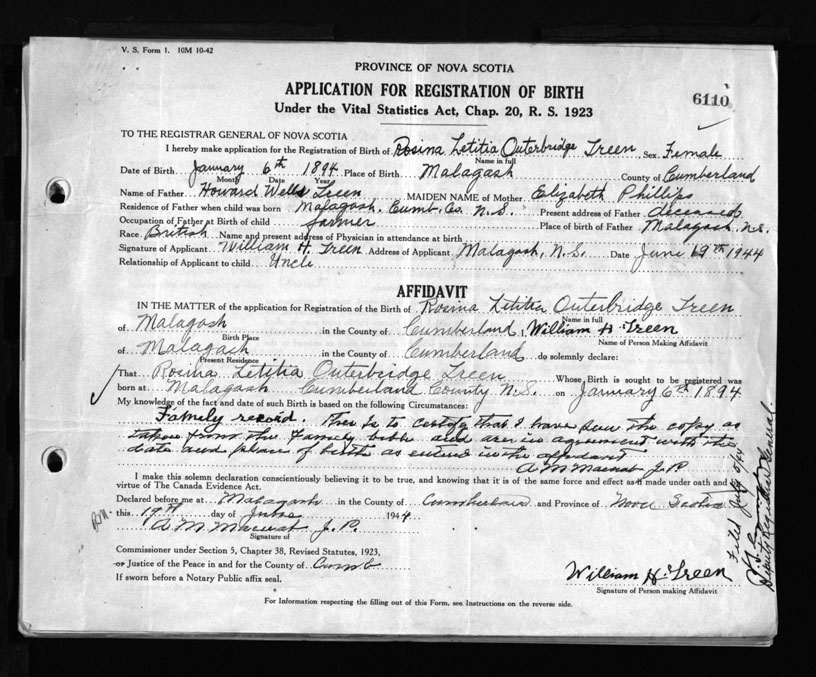 V. S. Form 1. 10M 10-42
PROVINCE OF NOVA SCOTIA
APPLICATION FOR REGISTRATION OF BIRTH
6110
Under the Vital Statistics Act, Chap. 20, R. S. 1923
TO THE REGISTRAR GENERAL OF NOVA SCOTIA
I hereby make application for the Registration of Birth of Rosina Letitia Outerbridge Treen Sex Female
Name in full
Date of Birth January 6th 1894 Place of Birth Malagash County of Cumberland
Month Date Year
Name of Father Howard Wells Treen MAIDEN NAME of Mother Elizabeth Phillips
Residence of Father when child was born Malagash, Cumb. Co. N. S. Present address of Father deceased
Occupation of Father at Birth of child farmer Place of birth of Father Malagash, N.S.
Race British Name and present address of Physician in attendance at birth
Signature of Applicant William H. Treen Address of Applicant Malagash, N.S. Date June 19th 1944
Relationship of Applicant to child Uncle
AFFIDAVIT
IN THE MATTER of the application for Registration of the Birth of Rosina Letitia Outerbridge Treen
Name in full
of Malagash in the County of Cumberland I, William H. Treen
Birth Place Name of Person Making Affidavit
of Malagash in the County of Cumberland do solemnly declare:
Present Residence
That Rosina Letitia Outerbridge Treen Whose Birth is sought to be registered was
born at Malagash Cumberland County N. S. on January 6th 1894
My knowledge of the fact and date of such Birth is based on the following Circumstances:
Family record. This is to certify that I have seen the copy as
taken from the family bible and are in agreement with the
date and place of birth as entered in the affidavit
A M Macnab J. P.
I make this solemn declaration conscientiously believing it to be true, and knowing that it is of the same force and effect as if made under oath and by
virtue of The Canada Evidence Act.
Declared before me at Malagash in the County of Cumberland and Province of Nova Scotia
this 19th day of June 1944
A M Macnab J. P.
Signature of
Commissioner under Section 5, Chapter 38, Revised Statutes, 1923,
or Justice of the Peace in and for the County of Cumb
If sworn before a Notary Public affix seal.
William H. Treen
Signature of Person making Affidavit
For Information respecting the filling out of this Form, see Instructions on the reverse side.
Filed July
Deputy Registrar General.